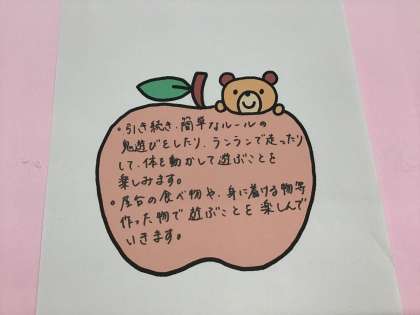 ・引き続き、簡単なルールの
鬼遊びをしたり、ランランで走ったり
して、体を動かして遊ぶことを
楽しみます。
・屋台の食べ物や、身に着ける物等
作った物で遊ぶことを楽しんで
いきます。